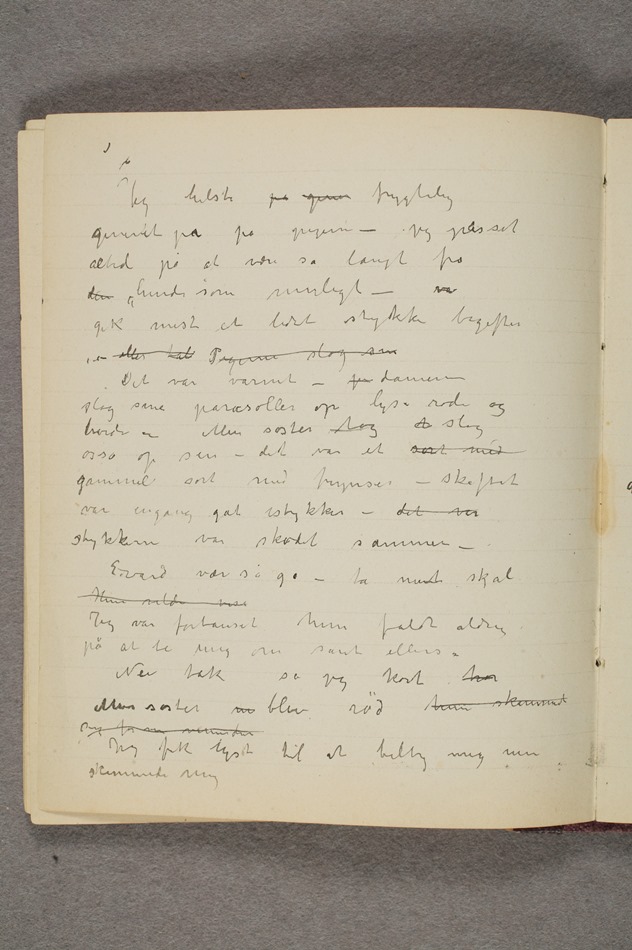 Jeg hilste på gener frygtelig
generet på pigerne – jeg passet
altid på at være så langt fra
den „hende som muligt – var
gik mest et lidet stykke bagefter
eller tal Pigerne slog sin
Det var varmt – damerne
slog sine parasoller op lyse røde og
hvide – Min søster slog slog
osså op sin – det var et sort med
gammel sort med frynser – skaftet
var engang gåt istykker – det var
stykkerne var skødet sammen –
Edvard vær så go – ta mit skal
Hun vilde vise
Jeg var forbauset hun faldt aldrig
på at be mig om sånt ellers –
Nei tak sa jeg kort hun
Min søster blev rød hun skammet
sig for sin veninder
Jeg fik lyst til at hilse mig men
skammede mig